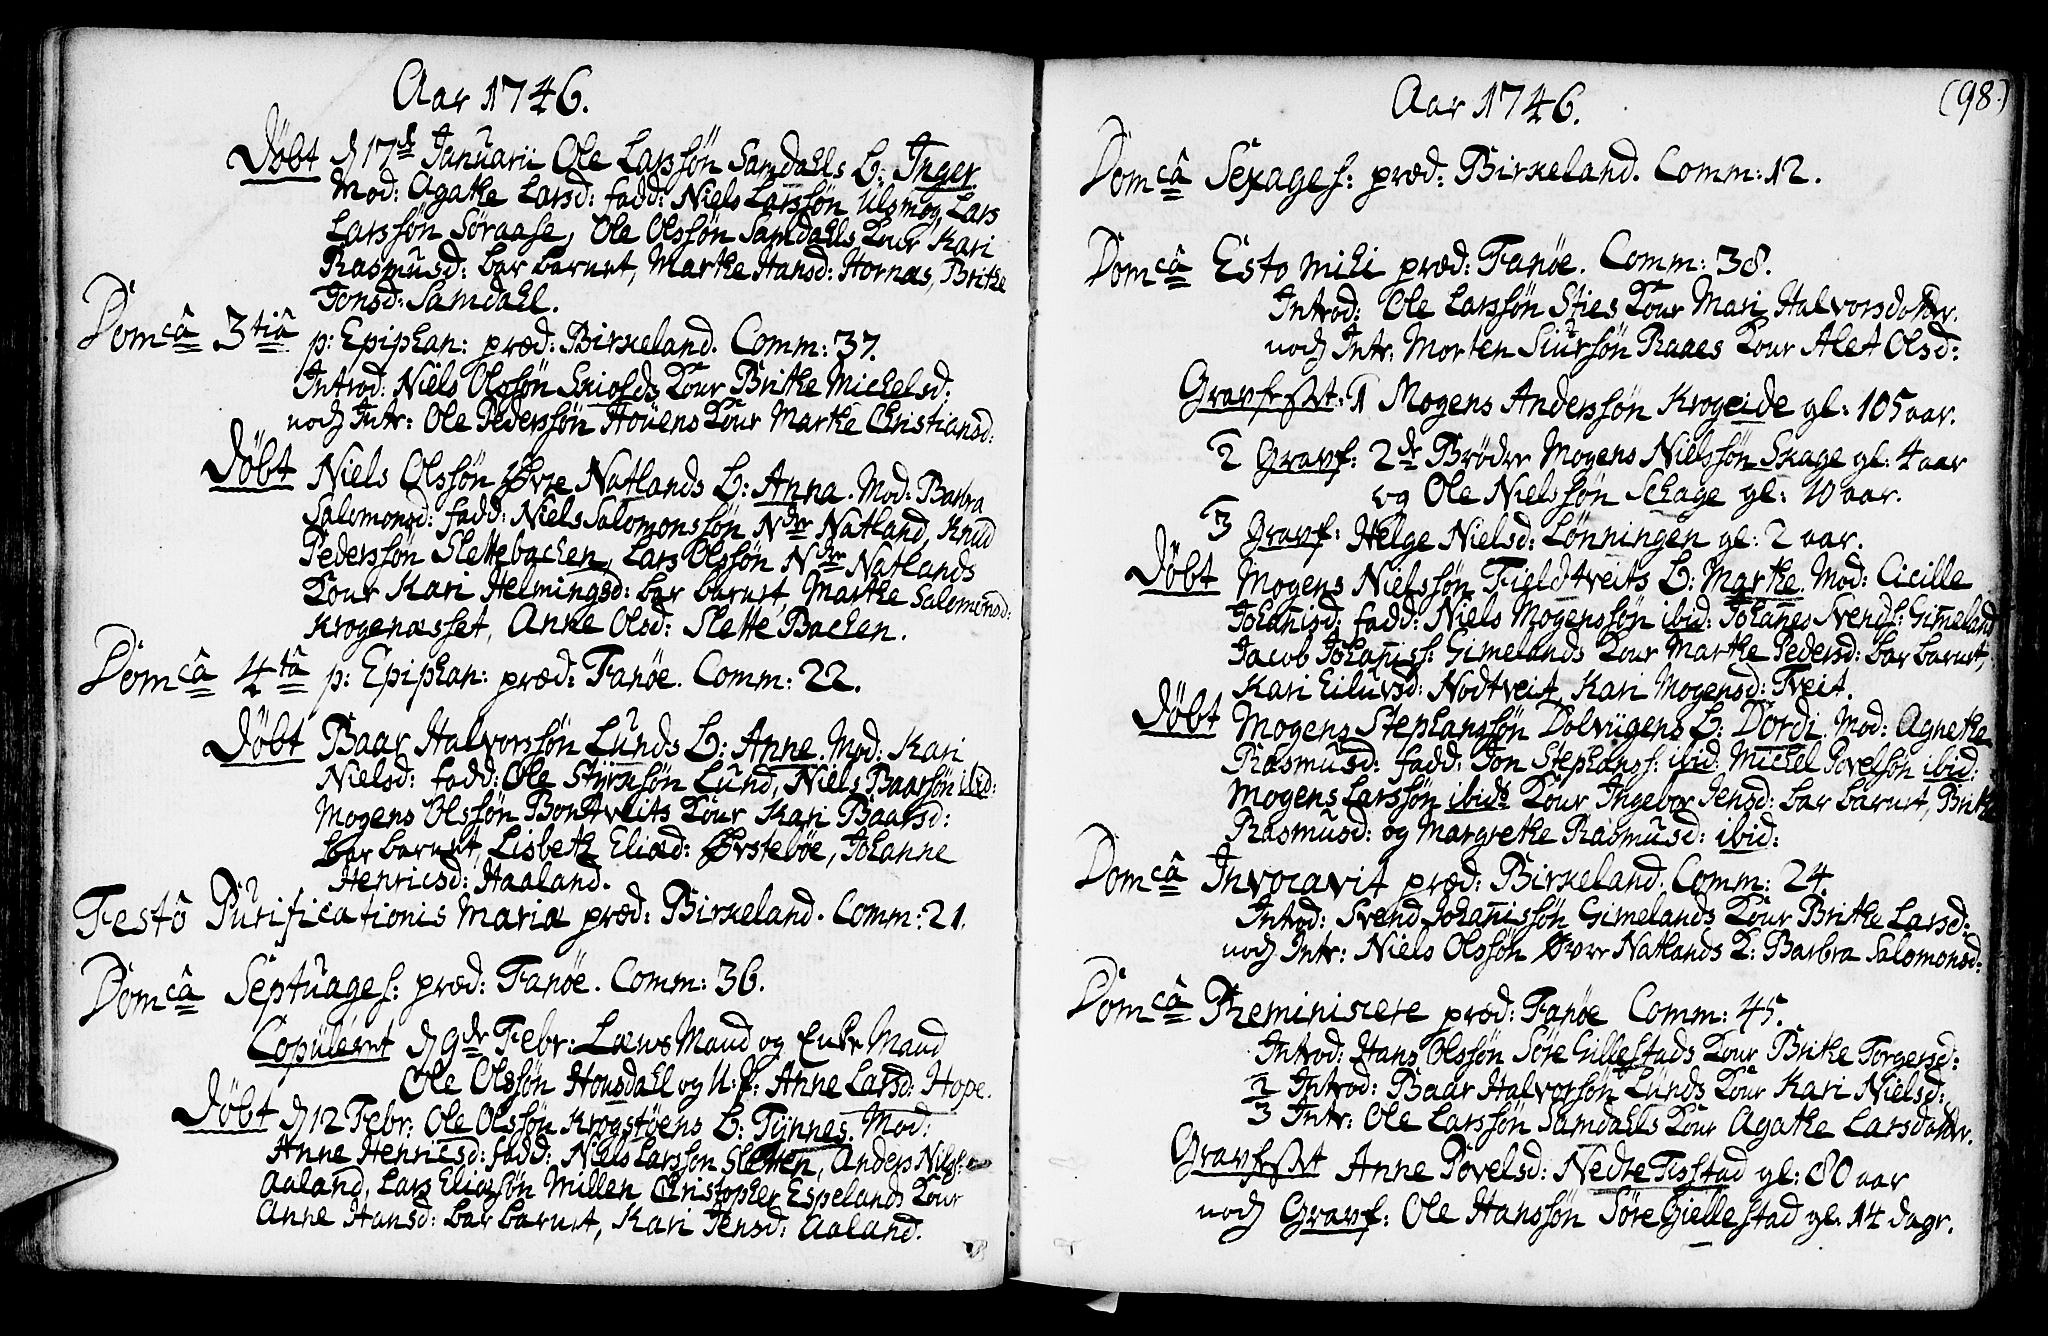 Aar 1746.
Döbt d 17de Januarii Ole Larssön Samdahls b: Inger
Mod: Agathe Larsd: fadd: Niels Larssön Ulsmog, Lars
Larssön Söraase, Ole Olssön Samdahls Kour Kari
Rasmusd: bar barnet, Marthe Hansd: Hornæs, Brithe
Jonsd: Samdahl.
Domcâ 3tiâ p: Epiphan: præd: Birkeland. Comm: 37.
Introd: Niels Olssön Skiolds Kour Brithe Michelsd:
nock Intr: Ole Pederssön Houens Kour Marthe Christiansd:
Döbt Niels Olssön Øvre Natlands b: Anna. Mod: Barbra
Salomonsd: fadd: Niels Salomonssön Ndre Natland, Knud
Pederssön Slettebachen, Lars Olssön Ndre Natlands
Kour Kari Helmingsd: bar barnet, Marthe Salomonsd:
Krogenæsset, Anne Olsd: Slette Bachen.
Domcâ 4tâ p: Epiphan: præd: Fanöe. Comm: 22.
Döbt Baar Halvorssön Lunds b: Anne. Mod: Kari
Nielsd: fadd: Ole Styrksön Lund, Niels Baarsön ibid:
Mogens Olssön Bontveits Kour Kari Baarsd:
bar barnet, Lisbeth Eliæd: Örsteböe, Johanne
Henricsd: Haaland.
Festô Purificationis Mariæ præd: Birkeland. Comm: 21.
Domcâ Septuages: præd: Fanöe. Comm: 36.
Copuleret d 9de Febr: Laws Mand og Enke Mand
Ole Olssön Housdahl og U: P: Anne Larsd: Hope.
Döbt d 12 Febr: Ole Olssön Krogstöens b: Tynnes. Mod:
Anne Henricsd: fadd: Niels Larssön Sletten, Anders Nilss:
Aaland, Lars Eliæsön Millen, Christopher Espelands Kour
Anne Hansd: bar barnet, Kari Jensd: Aaland.
Aar 1746.
(98.)
Domcâ Sexages: præd: Birkeland. Comm: 12.
Domcâ Esto mihi præd: Fanöe. Comm: 38.
Introd: Ole Larssön Sties Kour Mari Halvorsdotter.
nock Intr: Morten Siursön Raaes Kour Alet Olsd:
Gravfæst: 1 Mogens Anderssön Krogeide gl: 105 aar.
2 Gravf: 2de Brödre Mogens Nielssön Skage gl: 4 aar
og Ole Nielssön Schage gl: 10 aar.
3 Gravf: Helge Nielsd: Lönningen gl: 2 aar.
Döbt Mogens Nielssön Fieldtveits b: Marthe. Mod: Cicille
Johanisd: fadd: Niels Mogenssön ibid: Johanes Svends: Gimeland
Jacob Johaniss: Gimelands Kour Marthe Pedersd: bar barnet,
Kari Eiluvsd: Nodtveit, Kari Mogensd: Tveit.
Döbt Mogens Stephanssön Dolvigens b: Dordi. Mod: Agnethe
Rasmusd: fadd: Jon Stephanss: ibid: Michel Povelsön ibid:
Mogens Larssön ibids Kour Ingebor Jensd: bar barnet, Brithe
Rasmusd: og Margrethe Rasmusd: ibid:
Domcâ Invocavit præd: Birkeland. Comm: 24.
Introd: Svend Johanissön Gimelands Kour Brithe Larsd:
nock Intr: Niels Olssön Øvre Natlands K: Barbra Salomonsd:
Domcâ Reminiscere præd: Fanöe Comm: 45.
Introd: Hans Olssön Söre Gillestads Kour Brithe Torgersd:
2 Introd: Baar Halvorsön Lunds Kour Kari Nielsd:
3 Intr: Ole Larssön Samdahls Kour Agathe Larsdotter.
Gravfæst Anne Povelsd: Nedre Tisstad gl: 80 aar
nock Gravf: Ole Hanssön Söre Giellestad gl: 14 dagr.